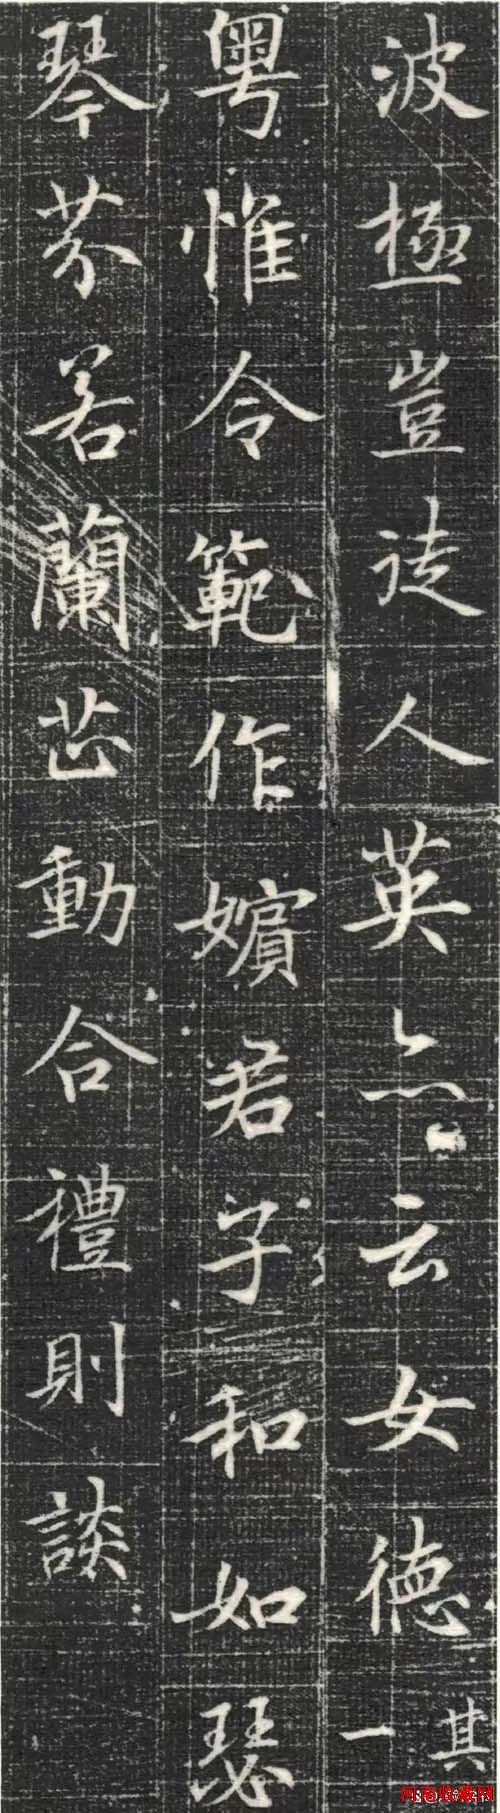 波極豈徒人英亦云女德其一
粤惟令範作嬪君子和如瑟
琴芬若蘭芷動合禮則談
河南收藏网